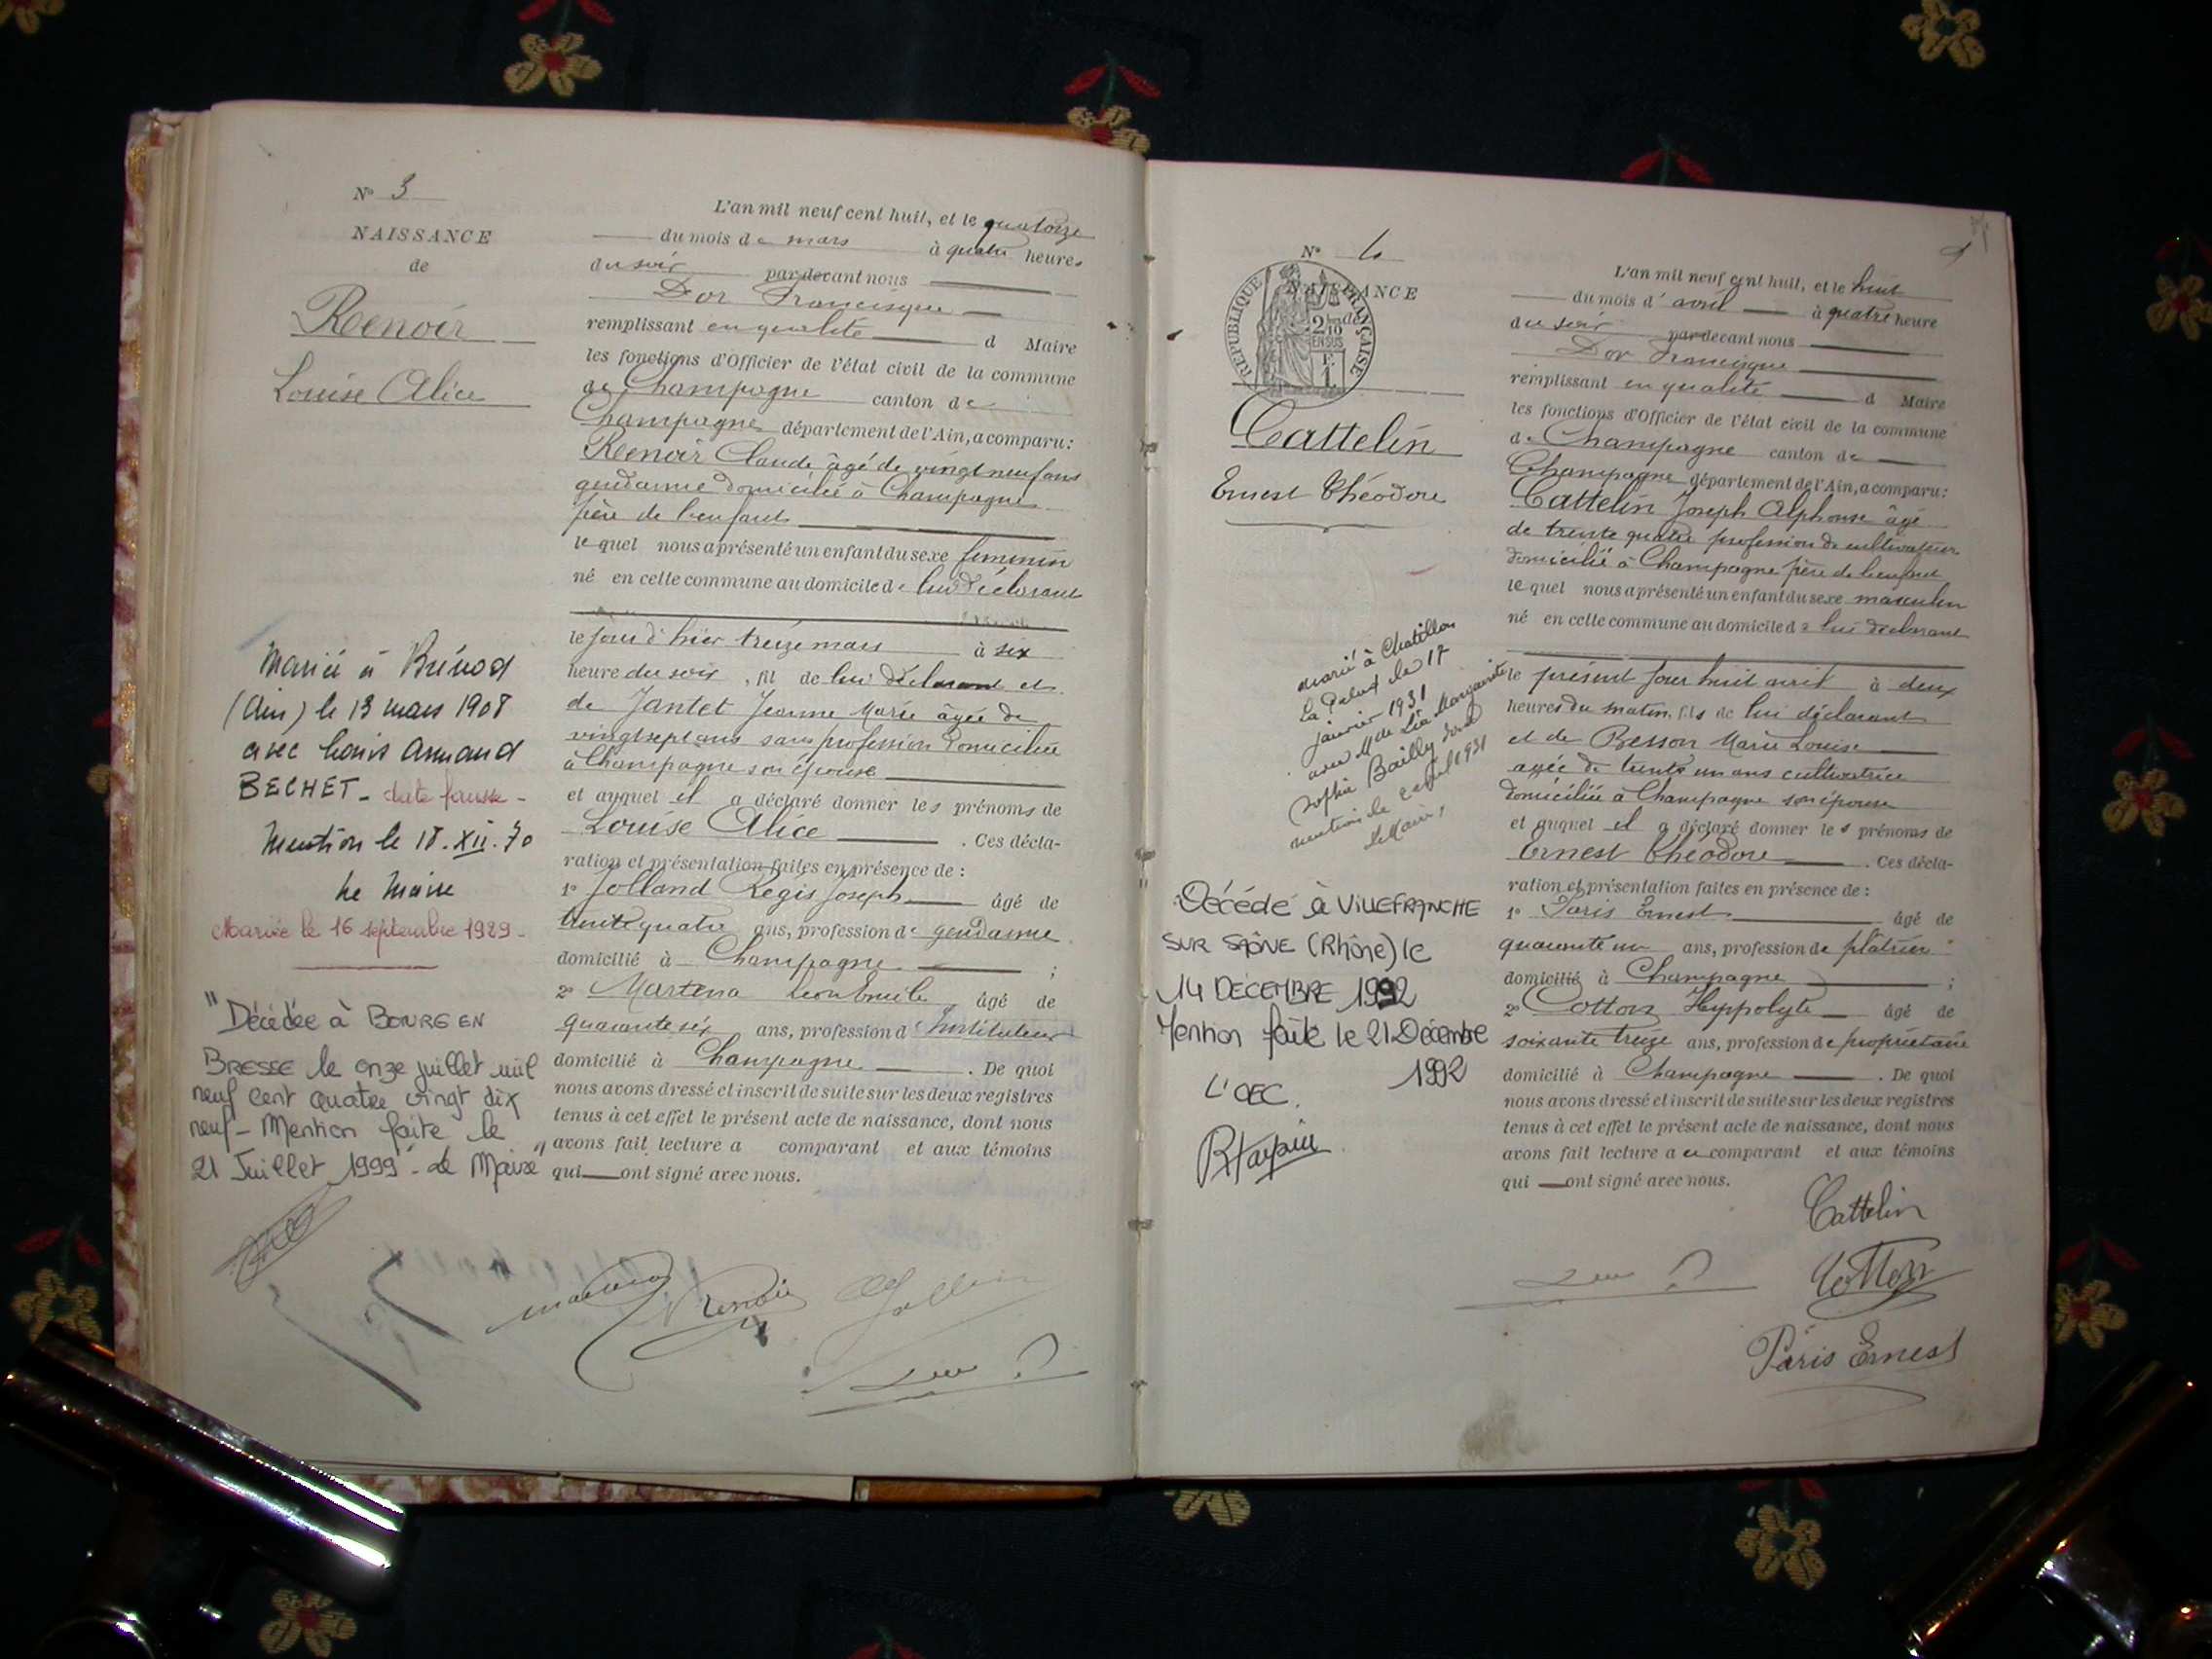 N° 3
NAISSANCE
de
Renoir
Louise Alice
Mariée à Brénod
(Ain) le 13 mars 1908
avec Louis Armand
BECHET - date fausse -
Mention le 18.XII.70
Le Maire
Mariée le 16 septembre 1929 -
"Décédée à BOURG EN
BRESSE le onze juillet mil
neuf cent quatre vingt dix
neuf - Mention faite le
21 Juillet 1999" - Le Maire
L'an mil neuf cent huit, et le quatorze
du mois de mars à quatre heures
du soir par devant nous
Dor Francisque
remplissant en qualité d Maire
les fonctions d'Officier de l'état civil de la commune
de Champagne canton de
Champagne département de l'Ain, a comparu :
Renoir Claude âgé de vingt neuf ans
gendarme domicilié à Champagne
père de l'enfant
lequel nous a présenté un enfant du sexe feminin
né en cette commune au domicile de lui déclarant
le jour d'hier treize mars à six
heure du soir, fil de lui déclarant et
de Jantet Jeanne Marie âgée de
vingt sept ans sans profession domiciliée
à Champagne son épouse
et auquel il a déclaré donner les prénoms de
Louise Alice . Ces décla-
ration et présentation faites en présence de :
1° Jolland Régis Joseph âgé de
trente quatre ans, profession de gendarme
domicilié à Champagne ;
2° Martena Léon Emile, âgé de
quarante six ans, profession d'Instituteur
domicilié à Champagne . De quoi
nous avons dressé et inscrit de suite sur les deux registres
tenus à cet effet le présent acte de naissance, dont nous
avons fait lecture a comparant et aux témoins
qui ont signé avec nous.
Renoir
N° 4
NAISSANCE
de
RÉPUBLIQUE FRANÇAISE
2/10
EN SUS
F.
1
Cattelin
Ernest Théodore
marié à Chatillon
la Palud le 17
janvier 1931
avec Mlle Léa Marguerite
Sophie Bailly
mention le 2 avril 1931
Le Maire,
Décédé à VILLEFRANCHE
SUR SAÔNE (Rhône) le
14 DÉCEMBRE 1992
Mention faite le 21 Décembre
1992
L'OEC.
L'an mil neuf cent huit, et le huit
du mois d'avril à quatre heure
du soir par devant nous
Dor Francisque
remplissant en qualité d Maire
les fonctions d'Officier de l'état civil de la commune
de Champagne canton de
Champagne département de l'Ain, a comparu :
Cattelin Joseph Alphonse âgé
de trente quatre profession de cultivateur
domicilié à Champagne père de l'enfant
lequel nous a présenté un enfant du sexe masculin
né en cette commune au domicile de lui déclarant
le présent jour huit avril à deux
heures du matin, fils de lui déclarant
et de Besson Marie Louise
agée de trente un ans cultivatrice
domiciliée à Champagne son épouse
et auquel il a déclaré donner les prénoms de
Ernest Théodore . Ces décla-
ration et présentation faites en présence de :
1° Paris Ernest âgé de
quarante un ans, profession de plâtrier
domicilié à Champagne ;
2° Cotton Hyppolyte âgé de
soixante treize ans, profession de propriétaire
domicilié à Champagne . De quoi
nous avons dressé et inscrit de suite sur les deux registres
tenus à cet effet le présent acte de naissance, dont nous
avons fait lecture a u comparant et aux témoins
qui ont signé avec nous.
Cattelin
Cotton
Pâris Ernest